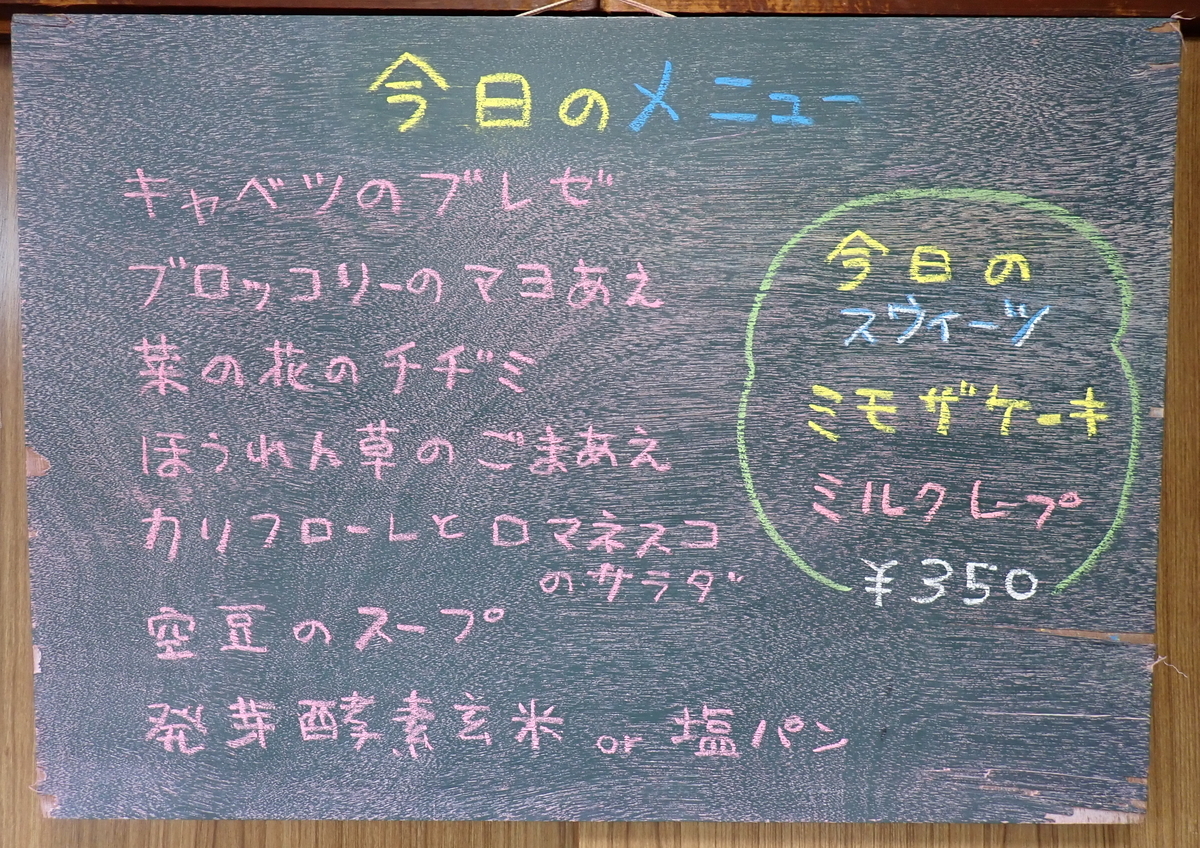 今日のメニュー
キャベツのブレゼ
ブロッコリーのマヨあえ
菜の花のチヂミ
ほうれん草のごまあえ
カリフローレとロマネスコ
のサラダ
空豆のスープ
発芽酵素玄米 or 塩パン
今日の
スウィーツ
ミモザケーキ
ミルクレープ
¥350